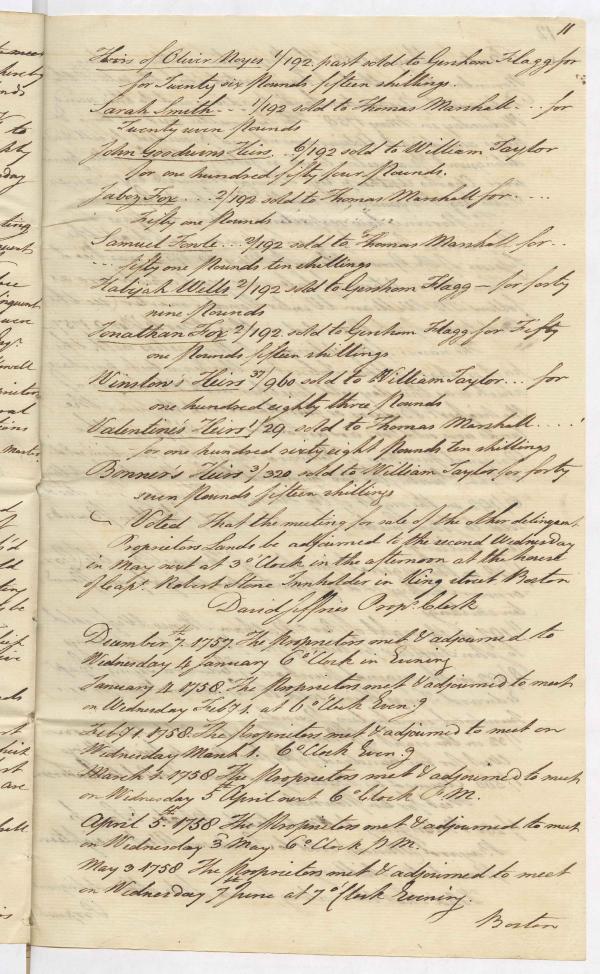 11
Heirs of Oliver Noyes 1/192 part sold to Gersham Flagg for
for Twenty six Pounds fifteen shillings.
Sarah Smith - - - 1/192 sold to Thomas Marshall . . . for
Twenty seven Pounds
John Goodwins Heirs . . 6/192 sold to William Taylor
for one hundred fifty four Pounds.
Jabez Fox . . . 2/192 sold to Thomas Marshall for . . . .
Fifty one Pounds
Samuel Fowle . . . 2/192 sold to Thomas Marshall for . .
. . . fifty one Pounds ten shillings
Habijah Wells 2/192 sold to Gersham Flagg — for forty
nine Pounds
Jonathan Fox 2/192 sold to Gersham Flagg for Fifty
one Pounds fifteen shillings
Winslow's Heirs 37/960 sold to William Taylor . . . for
one hundred eighty three Pounds
Valentine's Heirs 1/29 sold to Thomas Marshall . . . .
for one hundred sixty eight Pounds ten shillings
Bonner's Heirs 3/320 sold to William Taylor for forty
seven Pounds fifteen shillings
Voted That the meeting for sale of the other delinquent
Proprietors Lands be adjourned to the second Wednesday
in May next at 3 o'Clock in the afternoon at the house
of Capt. Robert Stone Innholder in King street Boston
David Jeffries Propr. Clerk
December 7th. 1757. The Proprietors met & adjourned to
Wednesday 4 January 6 o'Clock in Evening
January 4. 1758. The Proprietors met & adjourned to meet
on Wednesday Feby 1. at 6 o'Clock Eveng
Feby 1. 1758. The Proprietors met & adjourned to meet on
Wednesday March 1. 6 o'Clock Eveng
March 1. 1758 The Proprietors met & adjourned to meet
on Wednesday 5th April next 6 o'Clock P.M.
April 5th. 1758 The Proprietors met & adjourned to meet
on Wednesday 3 May 6 o'Clock P.M.
May 3 1758 The Proprietors met & adjourned to meet
on Wednesday 7th June at 7 o'Clock Evening.
Boston